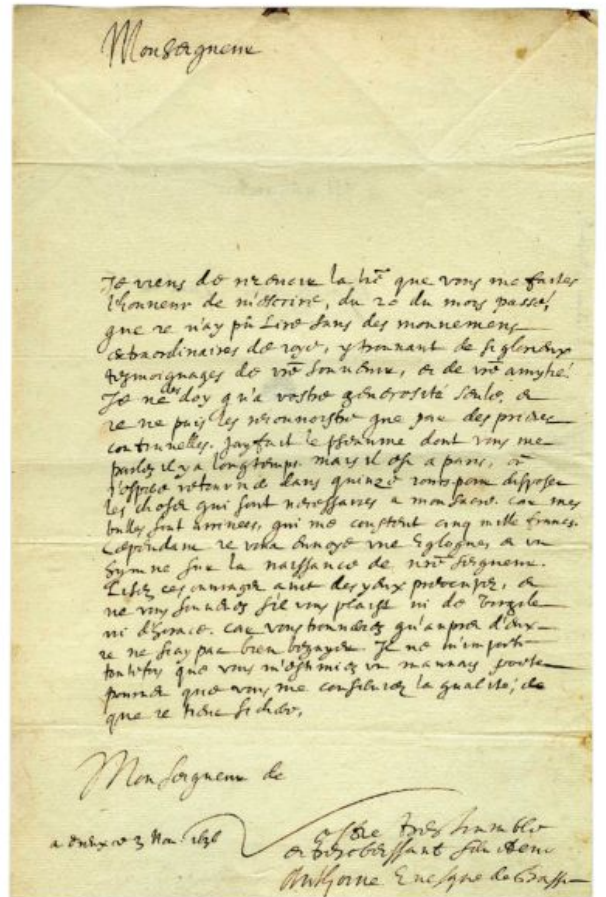 Monseigneur
Je viens de recevoir la lrẽ que vous me faites
l'honneur de m'escrire, du 20 du mois passé,
que je n'ay pû Lire sans des mouvemens
extraordinaires de joye, y trouvant de si glorieux
tesmoignages de vrẽ souvenir, et de vrẽ amytié.
Je ne les doy qu'a vostre generosité seule, et
je ne puis les reconnoistre que par des prieres
continuelles. Jay fait le pseaume dont vous me
parlez il y a longtemps. mais il est a paris, où
j'espere retourner dans quinze jours pour disposer
les choses qui sont necessaires a mon sacre. car mes
bulles sont arrivees, qui me coustent cinq mille francs.
Cependant je vous envoye une Eglogue, et un
hymne sur la naissance de nrẽ seigneur.
Lisez ces ouvrages avec des yeux , et
ne vous souvenez s'il vous plaist ni de Virgile
ni d'Horace. car vous trouverez qu'aupres d'eux
je ne sçay pas bien begayer. Il ne m'importe
toutefois que vous m'estimiez un mauvais poete
pourveu que vous me conserviez la qualité, de
que je tiens si chere,
Monseigneur de
a ce 3 Nov. 1636
Vostre tres humble
et tresobeissant serviteur
Anthoine Evesque de Grasse